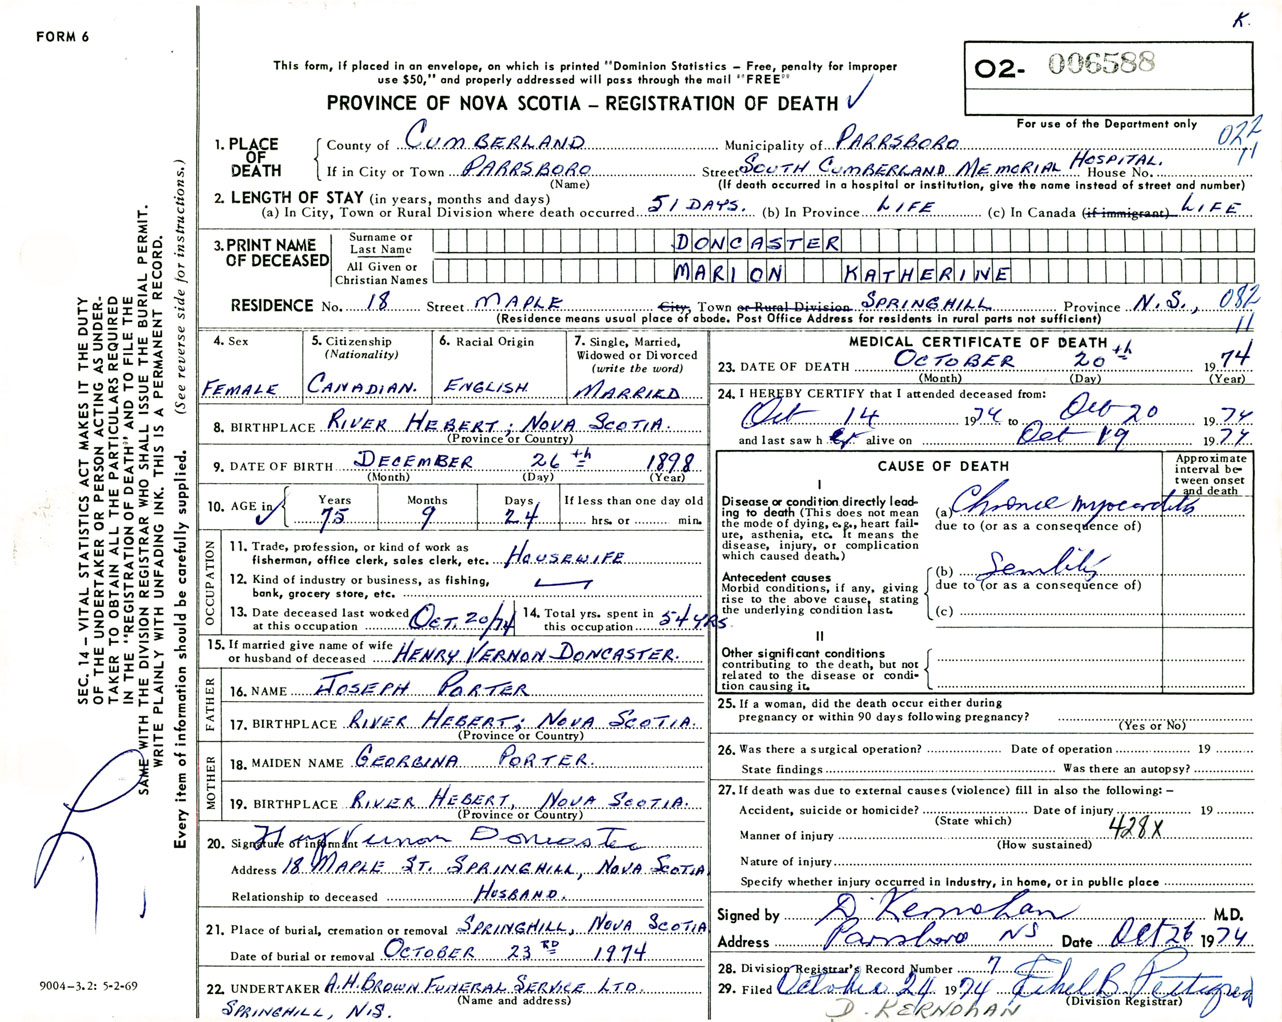 K.
FORM 6
This form, if placed in an envelope, on which is printed "Dominion Statistics – Free, penalty for improper
use $50," and properly addressed will pass through the mail "FREE"
PROVINCE OF NOVA SCOTIA – REGISTRATION OF DEATH ✓
O2- 006588
For use of the Department only
022
11
1. PLACE OF DEATH
County of CUMBERLAND Municipality of PARRSBORO
If in City or Town PARRSBORO Street SOUTH CUMBERLAND MEMORIAL HOSPITAL. House No.
(Name) (If death occurred in a hospital or institution, give the name instead of street and number)
2. LENGTH OF STAY (in years, months and days)
(a) In City, Town or Rural Division where death occurred 51 DAYS. (b) In Province LIFE (c) In Canada (if immigrant) LIFE
3. PRINT NAME OF DECEASED
Surname or Last Name DONCASTER
All Given or Christian Names MARION KATHERINE
RESIDENCE No. 18 Street MAPLE City, Town or Rural Division SPRINGHILL Province N.S., 082
11
(Residence means usual place of abode. Post Office Address for residents in rural parts not sufficient)
4. Sex
FEMALE
5. Citizenship
(Nationality)
CANADIAN.
6. Racial Origin
ENGLISH
7. Single, Married,
Widowed or Divorced
(write the word)
MARRIED
8. BIRTHPLACE RIVER HEBERT; NOVA SCOTIA.
(Province or Country)
9. DATE OF BIRTH DECEMBER 26th 1898
(Month) (Day) (Year)
10. AGE in ✓
Years 75
Months 9
Days 24
If less than one day old
hrs. or min.
OCCUPATION
11. Trade, profession, or kind of work as
fisherman, office clerk, sales clerk, etc. HOUSEWIFE
12. Kind of industry or business, as fishing,
bank, grocery store, etc.
13. Date deceased last worked
at this occupation OCT. 20/74
14. Total yrs. spent in
this occupation 54 YRS.
15. If married give name of wife
or husband of deceased HENRY VERNON DONCASTER.
FATHER
16. NAME JOSEPH PORTER
17. BIRTHPLACE RIVER HEBERT; NOVA SCOTIA.
(Province or Country)
MOTHER
18. MAIDEN NAME GEORGINA PORTER.
19. BIRTHPLACE RIVER HEBERT, NOVA SCOTIA.
(Province or Country)
20. Signature of informant Vernon Doncaster
Address 18 MAPLE ST. SPRINGHILL, NOVA SCOTIA
Relationship to deceased HUSBAND.
21. Place of burial, cremation or removal SPRINGHILL, NOVA SCOTIA
Date of burial or removal OCTOBER 23RD 1974
22. UNDERTAKER A.H. BROWN FUNERAL SERVICE LTD.
(Name and address)
SPRINGHILL, N.S.
MEDICAL CERTIFICATE OF DEATH
23. DATE OF DEATH OCTOBER 20th 1974
(Month) (Day) (Year)
24. I HEREBY CERTIFY that I attended deceased from:
Oct 14 1974 to Oct 20 1974
and last saw her alive on Oct 19 1974
CAUSE OF DEATH
Approximate
interval be-
tween onset
and death
I
Disease or condition directly lead-
ing to death (This does not mean
the mode of dying, e.g., heart fail-
ure, asthenia, etc. It means the
disease, injury, or complication
which caused death.)
(a) Chronic myocarditis
due to (or as a consequence of)
Antecedent causes
Morbid conditions, if any, giving
rise to the above cause, stating
the underlying condition last.
(b) Senility
due to (or as a consequence of)
(c)
II
Other significant conditions
contributing to the death, but not
related to the disease or condi-
tion causing it.
25. If a woman, did the death occur either during
pregnancy or within 90 days following pregnancy?
(Yes or No)
26. Was there a surgical operation? Date of operation 19
State findings Was there an autopsy?
27. If death was due to external causes (violence) fill in also the following: –
Accident, suicide or homicide? Date of injury 19
(State which)
Manner of injury 428X
(How sustained)
Nature of injury
Specify whether injury occurred in industry, in home, or in public place
Signed by D. Kernohan M.D.
Address Parrsboro NS Date Oct 26 1974
28. Division Registrar's Record Number 7
29. Filed October 24 1974 Ethel B.
(Division Registrar)
D. KERNOHAN
SEC. 14 – VITAL STATISTICS ACT MAKES IT THE DUTY
OF THE UNDERTAKER OR PERSON ACTING AS UNDER-
TAKER TO OBTAIN ALL THE PARTICULARS REQUIRED
IN THE "REGISTRATION OF DEATH" AND TO FILE THE
SAME WITH THE DIVISION REGISTRAR WHO SHALL ISSUE THE BURIAL PERMIT.
WRITE PLAINLY WITH UNFADING INK. THIS IS A PERMANENT RECORD.
Every item of information should be carefully supplied. (See reverse side for instructions.)
9004–3.2: 5-2-69